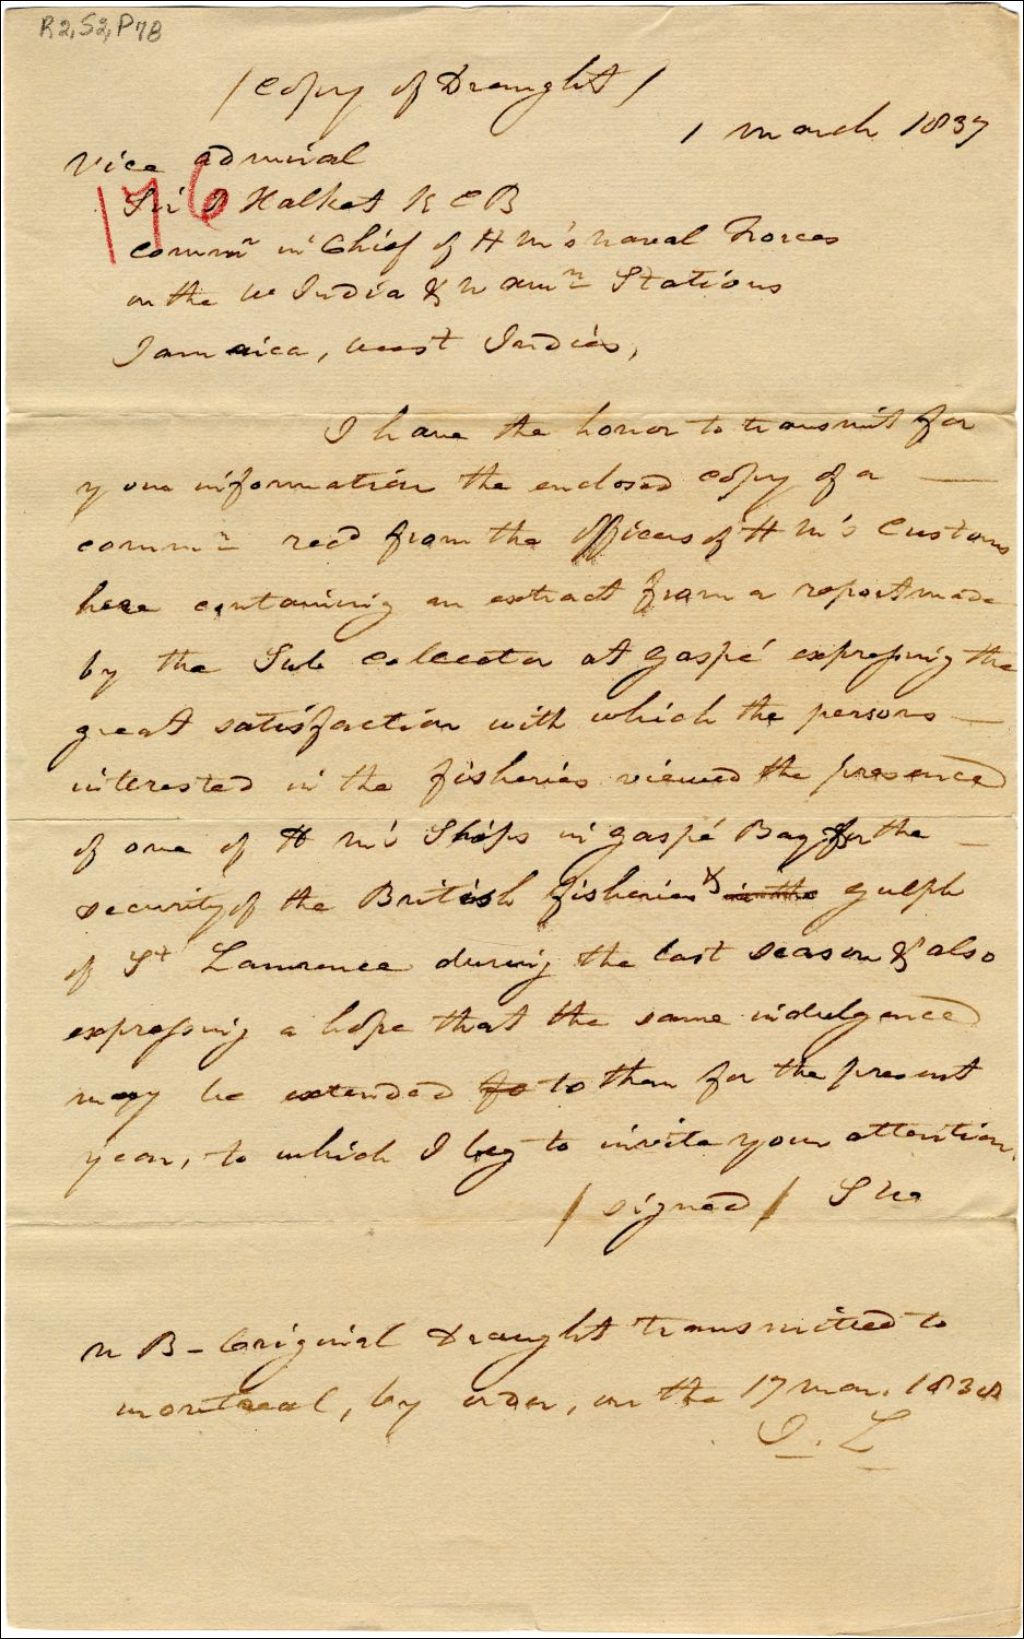 R2, S2, P78
/Copy of Draught/
1 March 1837
Vice Admiral
176
Sir P Halket K C B
Commr in Chief of H M's naval Forces
on the W India & N Amn Stations
Jamaica, West Indies,
I have the honor to transmit for
your information the enclosed copy of a
commn recd from the Officers of H M's Customs
here containing an extract from a report made
by the Sub Collector at Gaspé expressing the
great satisfaction with which the persons
interested in the fisheries viewed the presence
of one of H M's Ships in Gaspé Bay for the
security of the British fisheries & in the gulph
of St Lawrence during the last season & also
expressing a hope that the same indulgence
may be extended fo to them for the present
year, to which I beg to invite your attention.
/signed/
N B - Original Draught transmitted to
Montreal, by order, on the 17 Mar. 1838
J. L